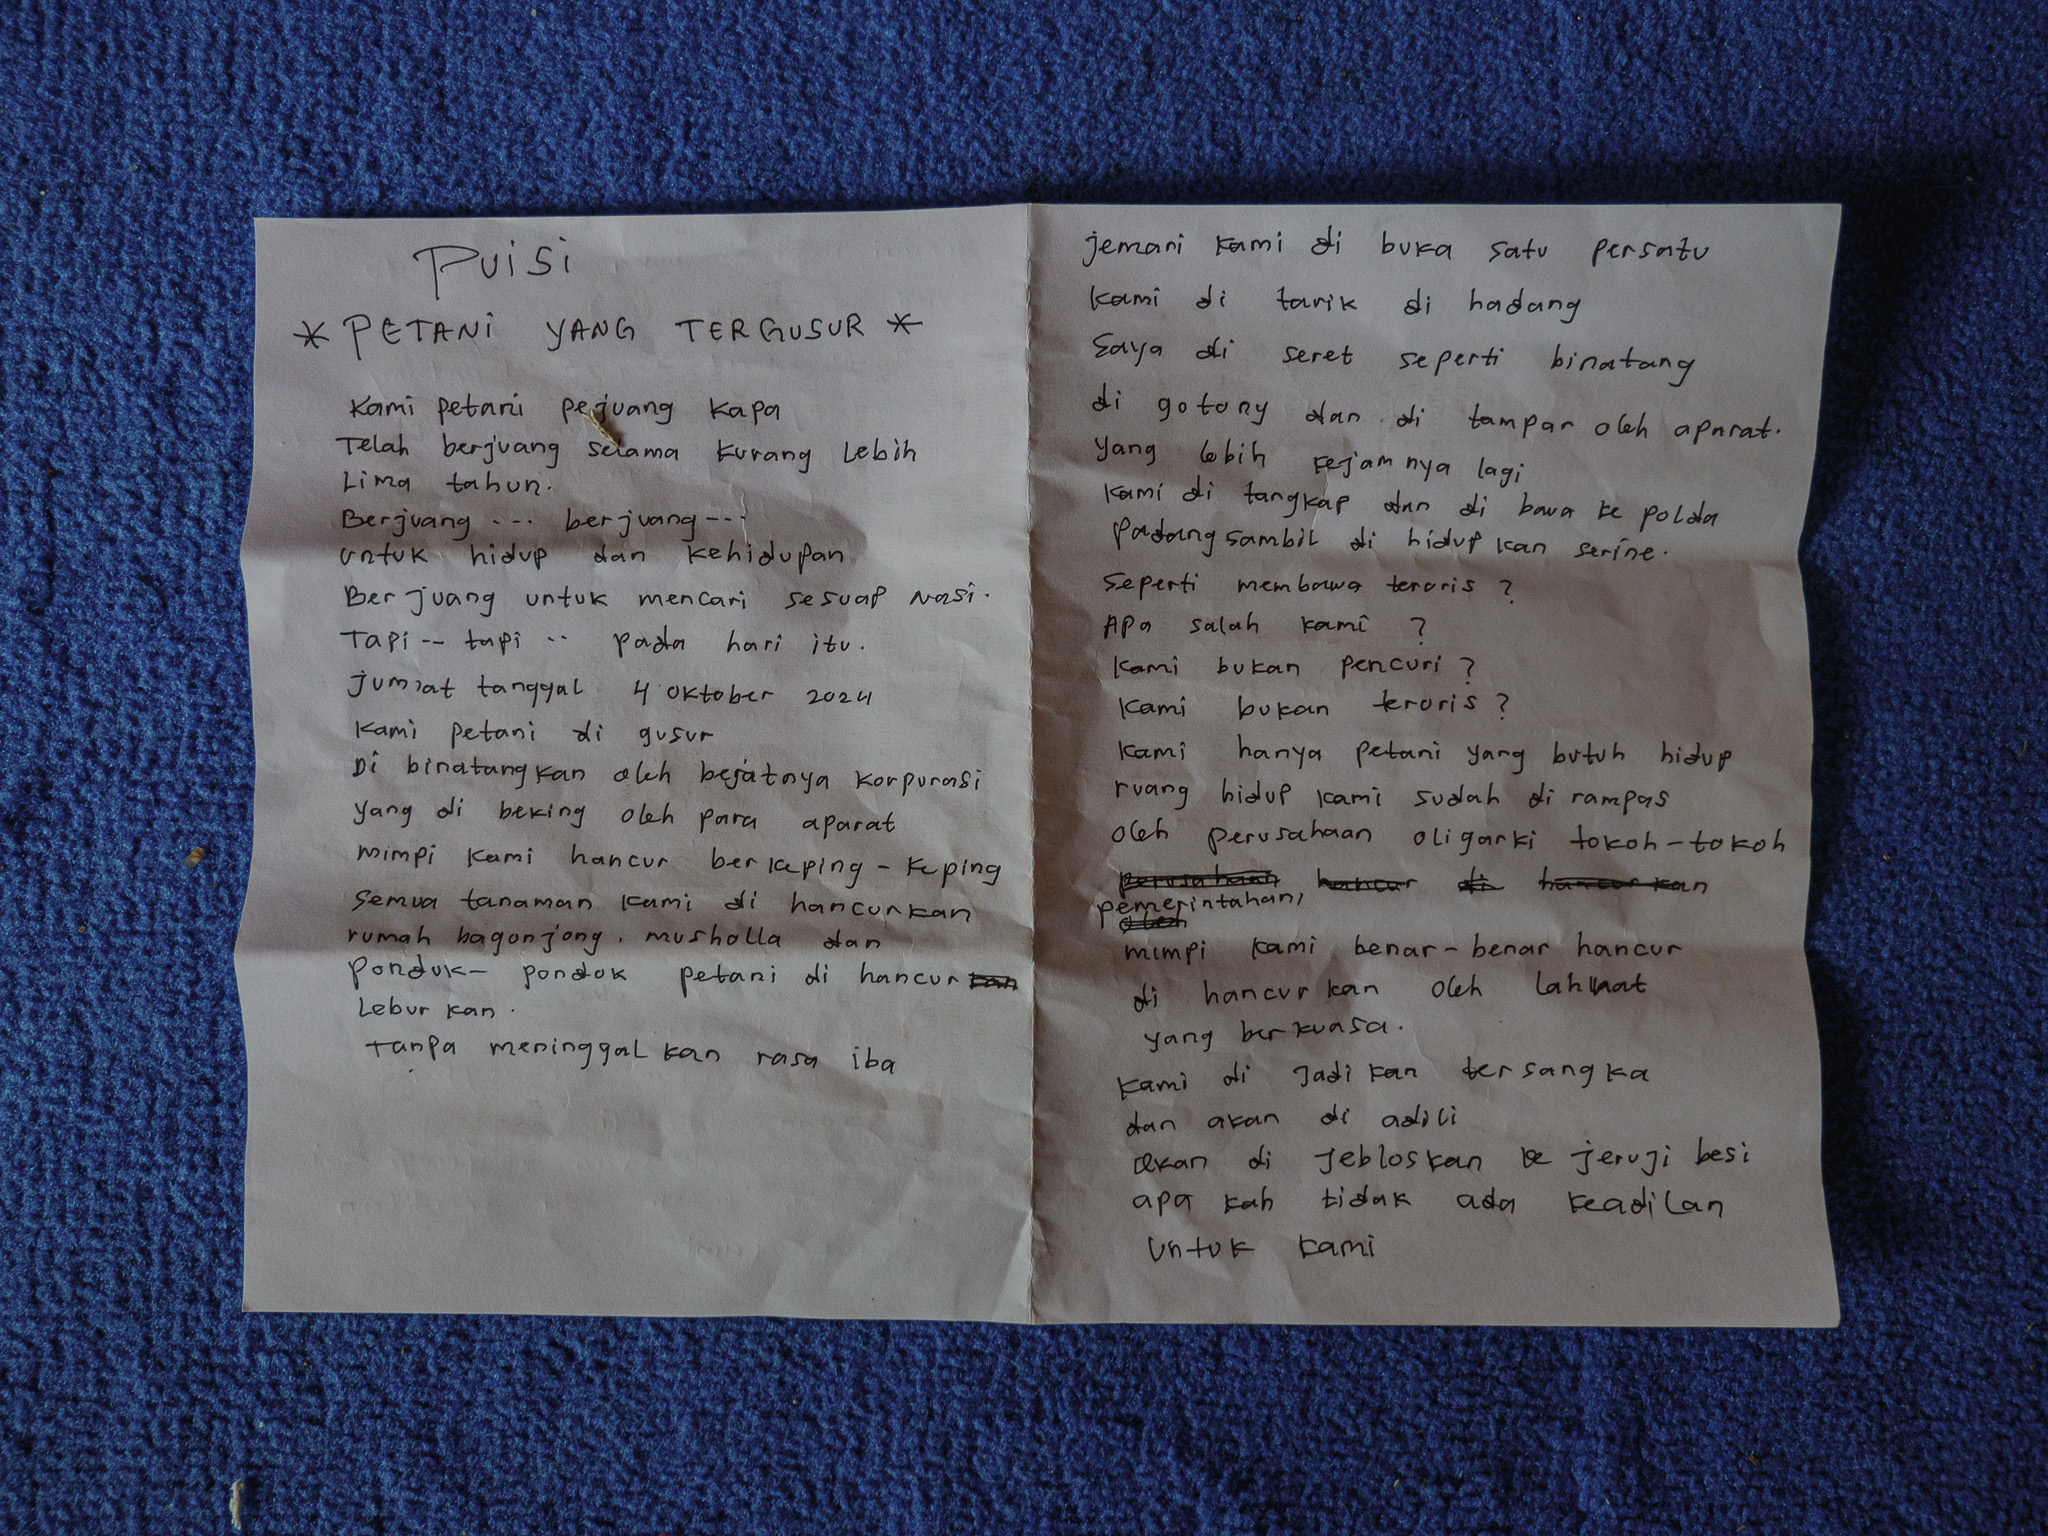 Puisi
* PETANI YANG TERGUSUR *
Kami petani pejuang Kapa
Telah berjuang selama kurang lebih
Lima tahun.
Berjuang --- berjuang ---
untuk hidup dan kehidupan
Berjuang untuk mencari sesuap nasi.
Tapi -- tapi -- pada hari itu.
jum'at tanggal 4 oktober 2024
Kami petani di gusur
Di binatangkan oleh bejatnya korporasi
yang di beking oleh para aparat
mimpi kami hancur berkeping - keping
semua tanaman kami di hancurkan
rumah bagonjong. musholla dan
pondok - pondok petani di hancur
Lebur kan.
Tanpa meninggalkan rasa iba
jemari kami di buka satu persatu
kami di tarik di hadang
Saya di seret seperti binatang
di gotong dan di tampar oleh aparat.
yang lebih kejamnya lagi
kami di tangkap dan di bawa ke polda
padang sambil di hidup kan serine.
seperti membawa teroris ?
Apa salah kami ?
kami bukan pencuri ?
kami bukan teroris ?
kami hanya petani yang butuh hidup
ruang hidup kami sudah di rampas
oleh perusahaan oligarki tokoh - tokoh
perusahaan hancur di hancurkan
pemerintahan,
oleh
mimpi kami benar - benar hancur
di hancur kan oleh
yang berkuasa.
kami di jadi kan tersangka
dan akan di adili
akan di jebloskan ke jeruji besi
apa kah tidak ada keadilan
untuk kami